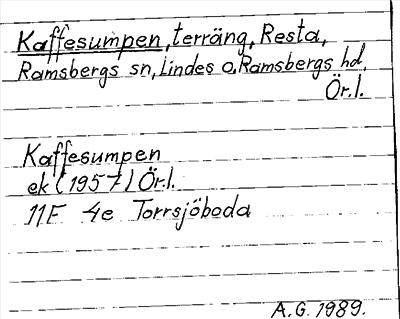 Kaffesumpen, terräng, Resta,
Ramsbergs sn, Lindes o. Ramsbergs hd,
Ör.l.
Kaffesumpen
ek (1957) Ör.l.
11F 4e Torrsjöboda
A.G. 1989.